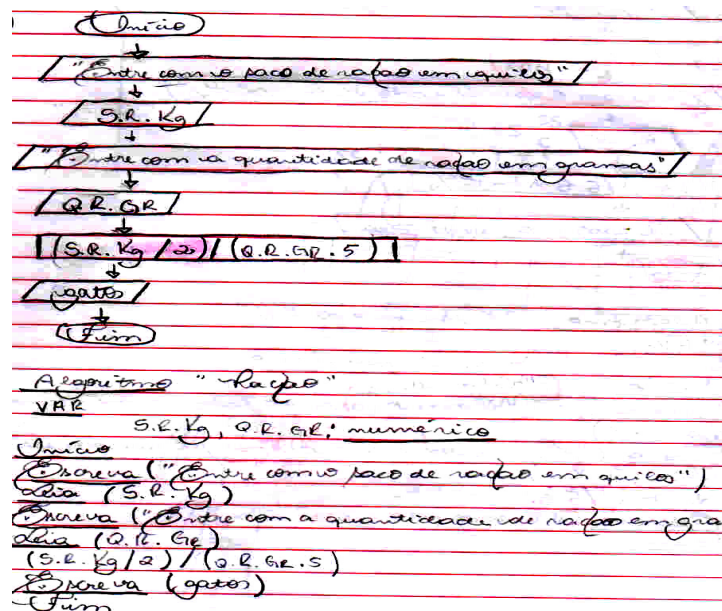 Início
"Entre com o saco de ração em quilos"
S.R. Kg
"Entre com a quantidade de ração em gramas"
Q.R. GR
(S.R. Kg / 2) / (Q.R. GR . 5)
gatos
Fim
Algoritmo "Ração"
VAR
S.R. Kg, Q.R. GR: numérico
Início
Escreva ("Entre com o saco de ração em quilos")
Leia (S.R. Kg)
Escreva ("Entre com a quantidade de ração em gra
Leia (Q.R. Gr)
(S.R. Kg / 2) / (Q.R. GR . 5)
Escreva (gatos)
Fim